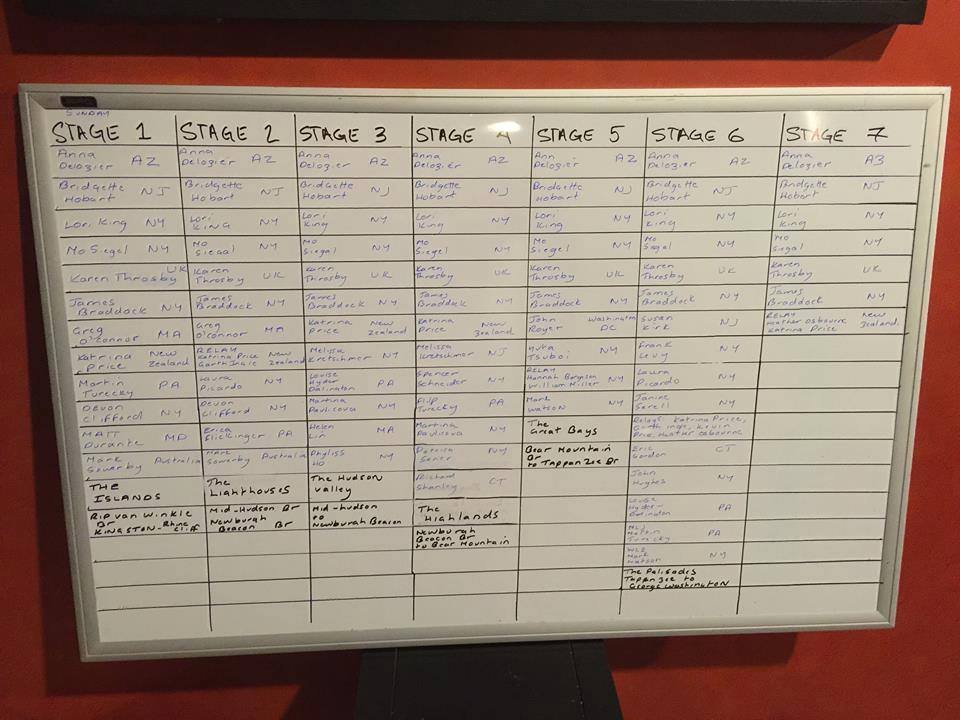 SUNDAY
STAGE 1
Anna Delozier AZ
Bridgette Hobart NJ
Lori King NY
Mo Siegel NY
Karen Throsby UK
James Braddock NY
Greg O'Connor MA
Katrina Price New Zealand
Martin Turecky PA
Devon Clifford NY
MATT Durante MD
Mark Sowerby Australia
THE ISLANDS
Rip van Winkle Br
KINGSTON-Rhine Cliff
STAGE 2
Anna Delozier AZ
Bridgette Hobart NJ
Lori KING NY
Mo Siegal NY
Karen Throsby UK
James Braddock NY
Greg O'Connor MA
RELAY Katrina Price New Zealand
Laura Picardo NY
Devon Clifford NY
Erica Flickinger PA
Marc Sowerby Australia
The Lighthouses
Mid-Hudson Br
Newburgh Beacon Br
STAGE 3
Anna Delozier AZ
Bridgette Hobart NJ
Lori King NY
Mo Siegal NY
Karen Throsby UK
James Braddock NY
Katrina Price New Zealand
Melissa Kretschmer NY
Louise Hyder Darlington PA
Martina Pavlicova NY
Helen Lin MA
Phyliss HO NY
The Hudson Valley
Mid-hudson
to
Newburah Beacon
STAGE 4
Anna Delozier AZ
Bridgette Hobart NJ
Lori King NY
Mo Siegel NY
Karen Throsby UK
James Braddock NY
Katrina Price New Zealand
Melissa Kretschmar NJ
Spencer Schneider NY
Flip Turecky PA
Martina Pavlicova NY
NY
Richard Stanley CT
The Highlands
Newburah
Beacon Br
to Bear Mountain
STAGE 5
Ann Delozier AZ
Bridgette Hobart NJ
Lori King NY
Mo Siegel NY
Karen Throsby UK
James Braddock NY
John Royer Washington DC
Yuta Tsuboi NY
RELAY
William Miller NY
Mark Watson NY
The Great Bays
Bear Mountain
Br
to Tappan Zee Br
STAGE 6
Anna Delozier AZ
Bridgette Hobart NJ
Lori King NY
Mo Siegal NY
Karen Throsby UK
James Braddock NY
Susan Kirk NJ
Frank Levy NY
Laura Picardo NY
Janine Serell NY
Relays Katrina Price,
Eric Gordon CT
John Hughes NY
Louise Hyder-Darlington PA
Turecky PA
Mark Watson NY
The Palisades
Tappan zee to
George Washington
STAGE 7
Anna Delozier A3
Bridgette Hobart NJ
Lori King NY
Mo Siegal NY
Karen Throsby UK
James Braddock NY
RELAY Heather Osbourne Katrina Price New Zealand